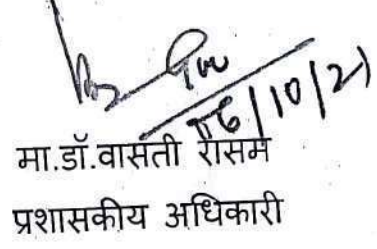 06/10/21
मा.डॉ.वासंती रासम
प्रशासकीय अधिकारी